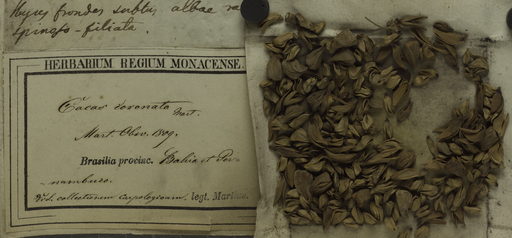 frondes subtus albae
spinoso-filiata.
HERBARIUM REGIUM MONACENSE.
Cocos coronata Mart.
Mart. Obv.
Brasilia provinc. Bahia et Per
nambuco.
Vid. collectionem carpologicam. legt. Martius.